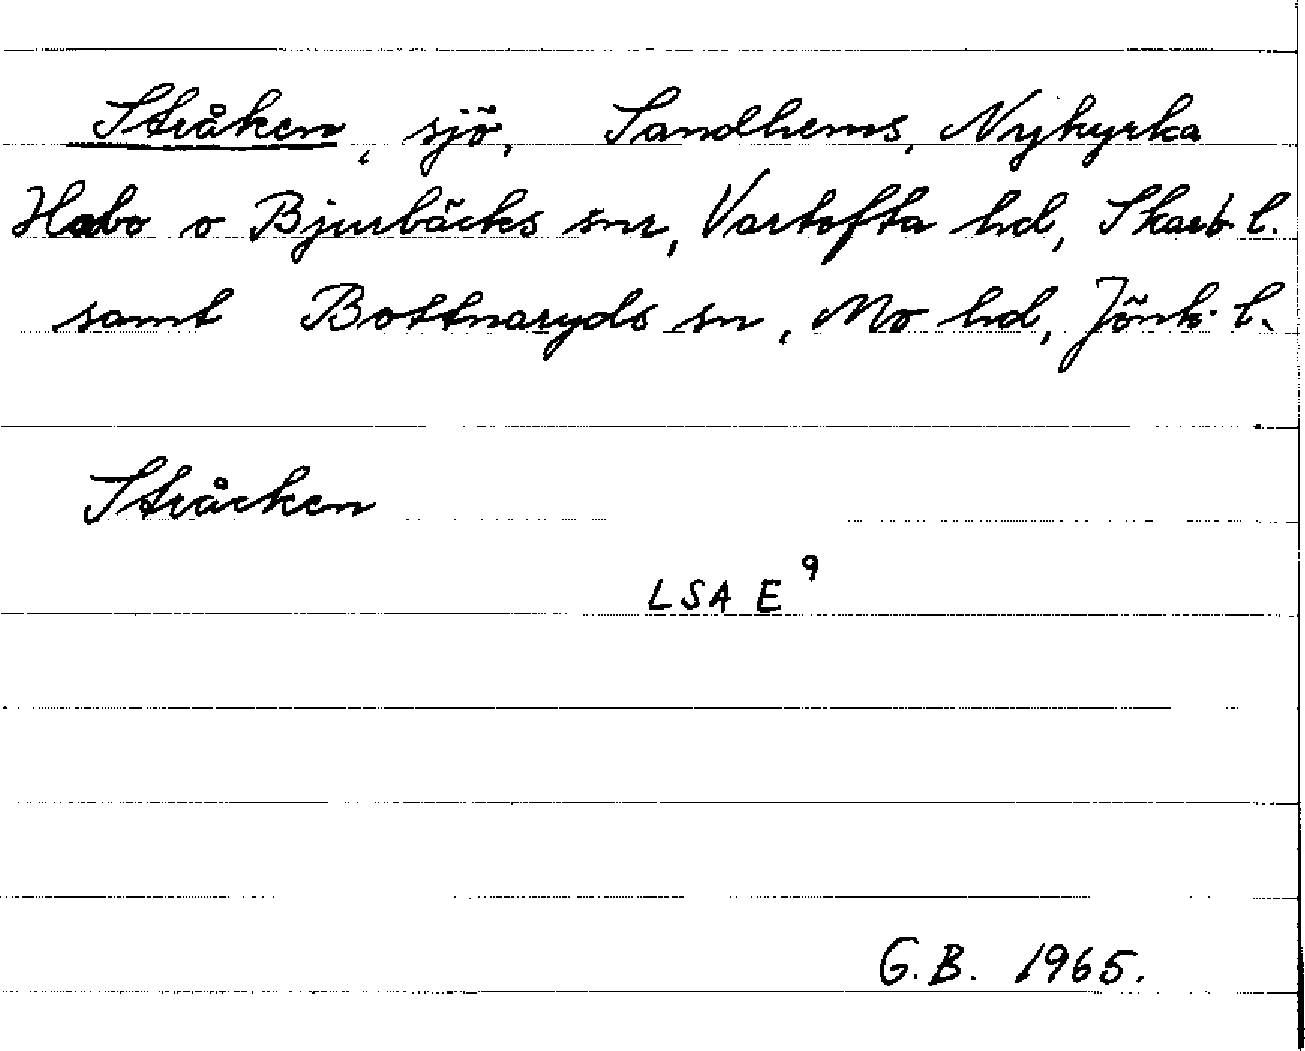 Stråken, sjö, Sandhems, Nykyrka
Habo o Bjurbäcks snr, Vartofta hd, Skarb. l.
samt Bottnaryds sn, Mo hd, Jönk. l.
Stråcken
LSA E⁹
G.B. 1965.